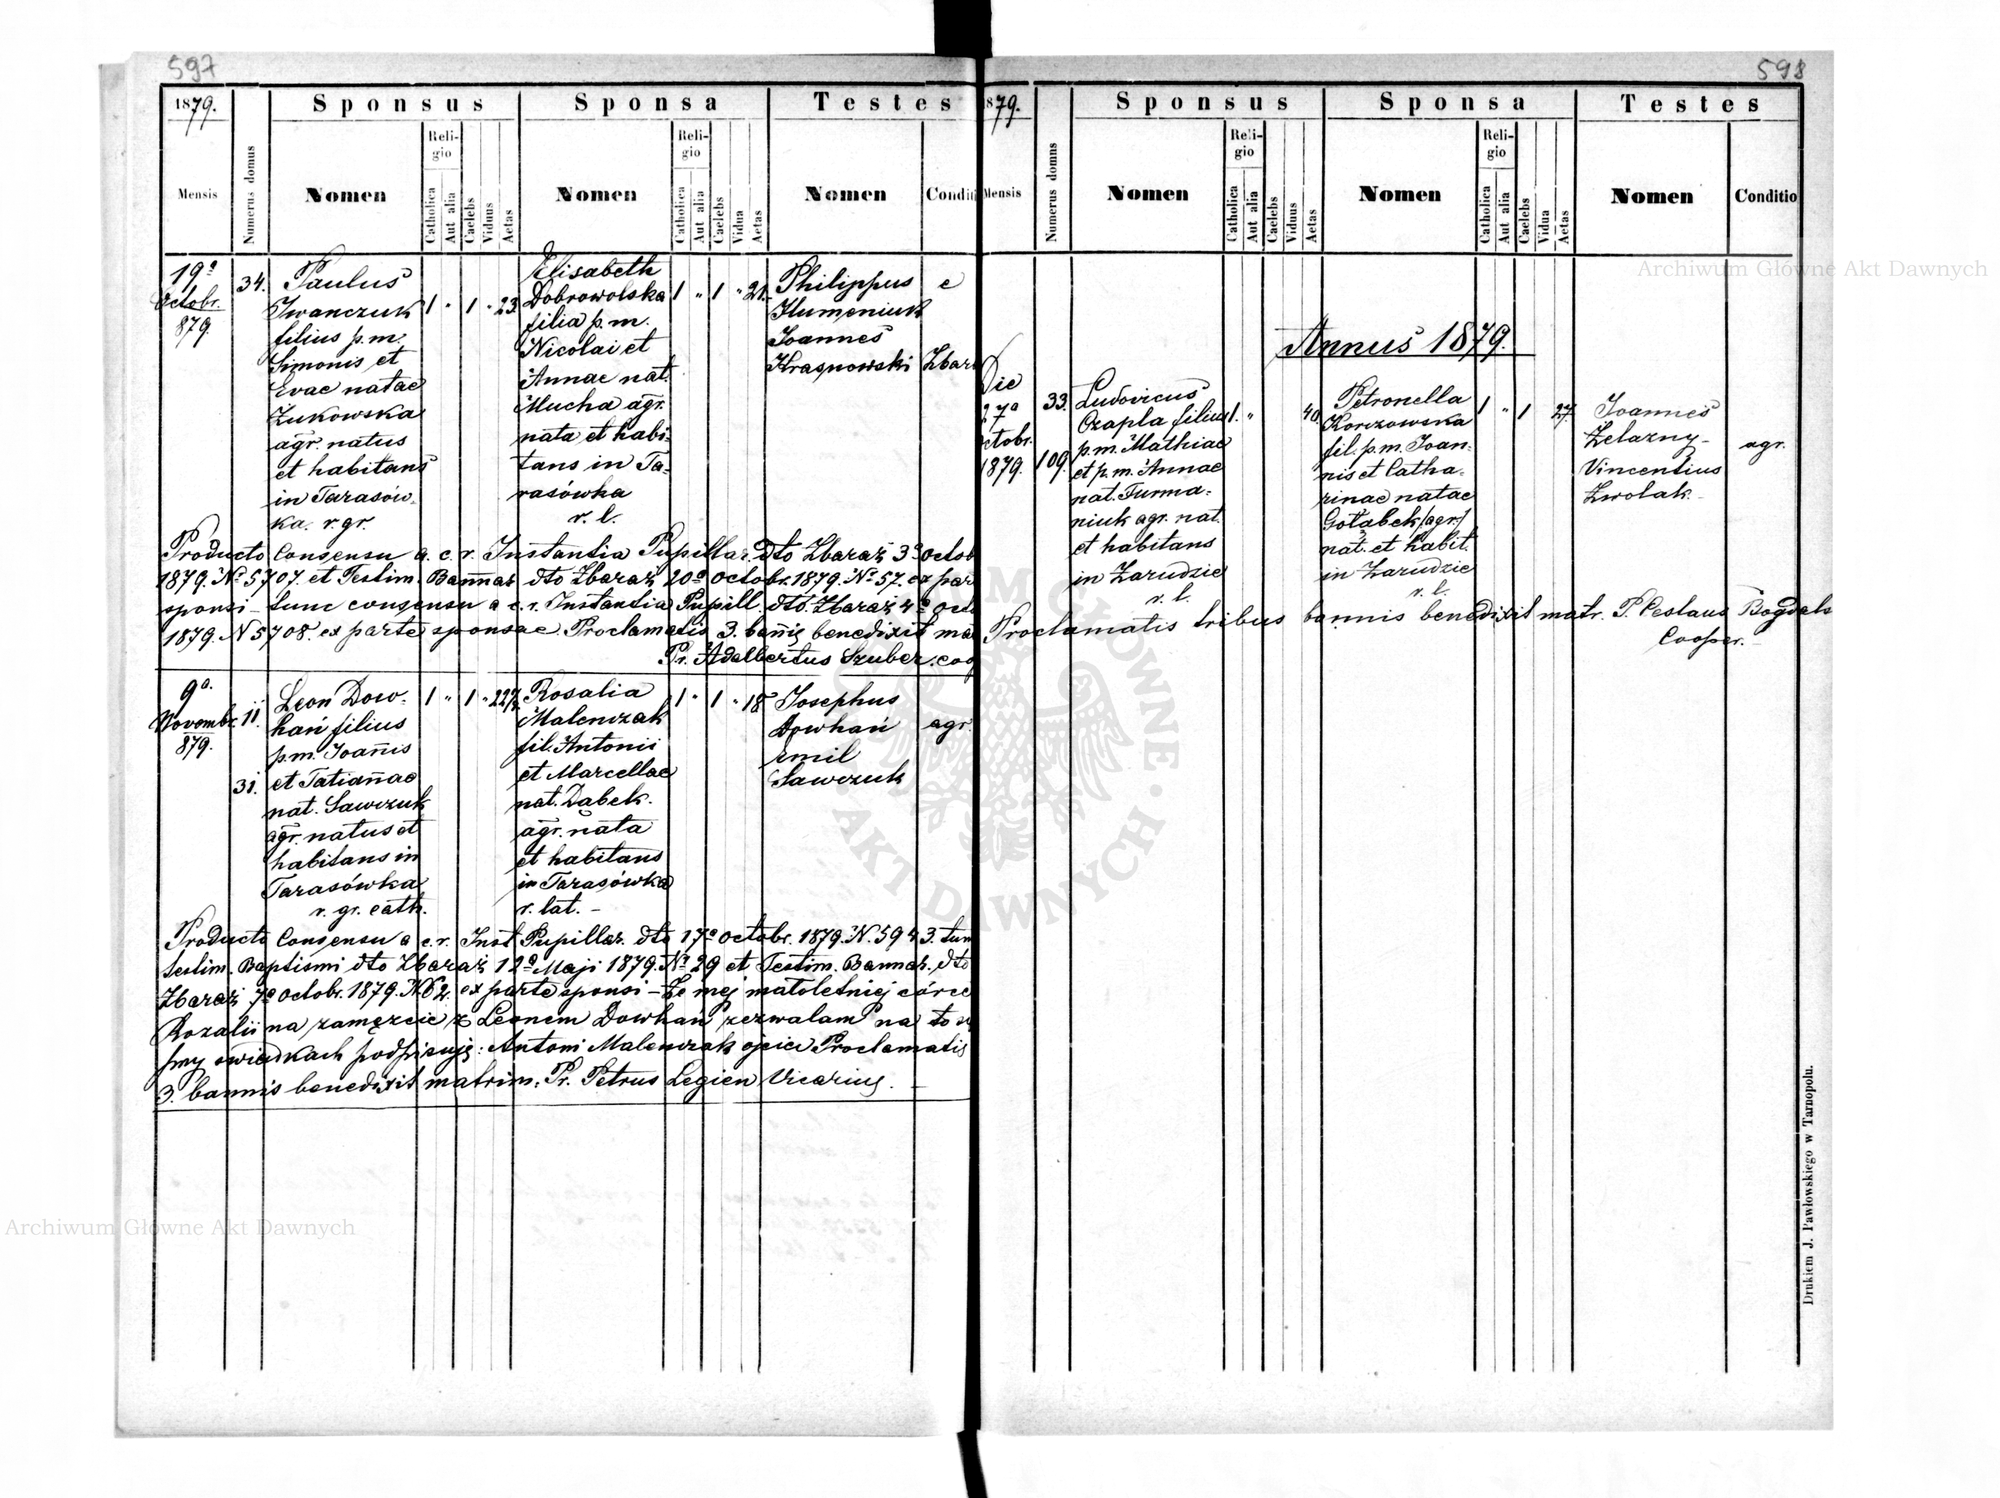 597
1879.
Sponsus
Sponsa
Testes
Mensis
Numerus domus
Nomen
Religio
Catholica
Aut alia
Caelebs
Viduus
Aetas
Nomen
Religio
Catholica
Aut alia
Caelebs
Vidua
Aetas
Nomen
Conditi
19ª
Octobr.
879.
34.
Paulus
Iwanczuk
filius p.m.
Simonis et
Evae natae
Żukowska
agr. natus
et habitans
in Tarasów.
ka. r. gr.
1 " 1 " 23.
Elisabeth
Dobrowolska
filia p.m.
Nicolai et
Annae nat.
Mucha agr.
nata et habi-
tans in Ta-
rasówka
r. l.
1 " 1 " 21.
Philippus
Humeniuk
Joannes
Krasnowski
Zbar
Producto Consensu a. c. r. Instantia Pupillar. dto Zbaraż 3ª Octob
1879. Nº 5707. et Testim. Bannar. dto Zbaraż 20ª Octobr. 1879. Nº 57. ex par
sponsi – tunc consensu a c. r. Instantia Pupill. dto. Zbaraż 4ª Octo
1879. N 5708. ex parte sponsae. Proclamatis 3. bannis benedixit ma
Pr. Adalbertus Szuber. coo
9ª.
Novembr.
879.
11.
31.
Leon Dow-
hań filius
p.m. Joannis
et Tatiannae
nat. Sawczuk
agr. natus et
habitans in
Tarasówka
r. gr. cath.
1 " 1 " 22
Rosalia
Malenczak
fil. Antonii
et Marcellae
nat. Dąbek.
agr. nata
et habitans
in Tarasówka
r. lat. –
1 " 1 " 18
Josephus
Dowhań
Emil
Sawczuk
agr.
Producto Consensu a c. r. Inst Pupillar. dto 17ª Octobr. 1879. N. 5943. tum
testim. Baptismi dto Zbaraż 12ª Maji 1879. Nº 29 et Testim. Bannar. dto
Zbaraż 7ª Octobr. 1879. N 62. ex parte sponsi – Że mej małoletniej córce
Rozalii na zamęzcie z Leonem Dowhań zezwalam na to
świadkach podpisuję: Antoni Malenczak ojciec Proclamatis
3. bannis benedixit matrim. Pr. Petrus Legien Vicarius. –
598
1879.
Sponsus
Sponsa
Testes
Mensis
Numerus domus
Nomen
Religio
Catholica
Aut alia
Caelebs
Viduus
Aetas
Nomen
Religio
Catholica
Aut alia
Caelebs
Vidua
Aetas
Nomen
Conditio
Annus 1879.
Die
27ª
Octobr.
1879.
33.
109.
Ludovicus
Czapla filius
p.m. Mathiae
et p.m. Annae
nat. Furma-
niuk agr. nat.
et habitans
in Zarudzie
r. l.
1. " 40.
Petronella
Korczowska
fil. p.m. Joan-
nis et Catha-
rinae natae
Gołąbek /agr./
nat. et habit.
in Zarudzie
r. l.
1 " 1 27.
Joannes
Żelazny –
Vincentius
Zwolak –
agr.
Proclamatis tribus bannis benedixit matr. P. Ceslaus
Cooper. –
Drukiem J. Pawłowskiego w Tarnopolu.
Archiwum Główne Akt Dawnych
Archiwum Główne Akt Dawnych